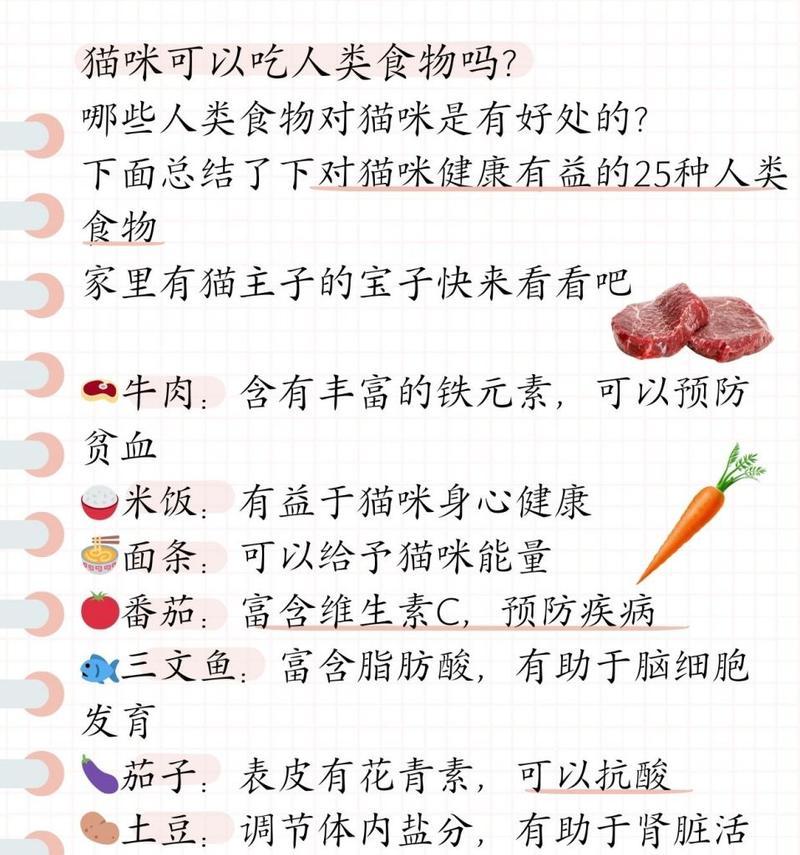 猫咪可以吃人类食物吗？
哪些人类食物对猫咪是有好处的？
下面总结了下对猫咪健康有益的25种人类
食物
家里有猫主子的宝子快来看看吧
牛肉：含有丰富的铁元素，可以预防
贫血
米饭：有益于猫咪身心健康
面条：可以给予猫咪能量
番茄：富含维生素C，预防疾病
三文鱼：富含脂肪酸，有助于脑细胞
发育
茄子：表皮有花青素，可以抗酸
土豆：调节体内盐分，有助于肾脏活